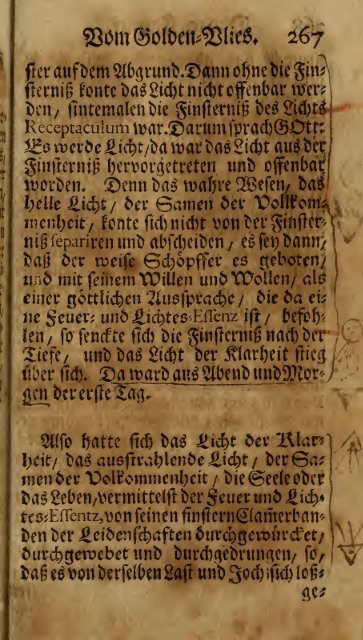 Vom Golden-Vlies. 267
ster auf dem Abgrund. Dann ohne die Fin-
sterniß konte das Licht nicht offenbar wer-
den / sintemalen die Finsterniß des Lichts
Receptaculum war. Darum sprach GOtt:
Es werde Licht / da war das Licht aus der
Finsterniß hervorgetreten und offenbar
worden. Denn das wahre Wesen / das
helle Licht / der Samen der Vollkom-
menheit / konte sich nicht von der Finster-
niß separiren und abscheiden / es sey dann /
daß der weise Schöpffer es geboten /
und mit seinem Willen und Wollen / als
einer göttlichen Aussprache / die da ei-
ne Feuer- und Lichtes-Essenz ist / befoh-
len / so senckte sich die Finsterniß nach der
Tiefe / und das Licht der Klarheit stieg
über sich. Da ward aus Abend und Mor-
gen der erste Tag.
Also hatte sich das Licht der Klar-
heit / das ausstrahlende Licht / der Sa-
men der Volkommenheit / die Seele oder
das Leben / vermittelst der Feuer und Lich-
tes-Essentz, von seinen finstern Clam̃erban-
den der Leidenschaften durchgewürcket /
durchgewebet und durchgedrungen / so /
daß es von derselben Last und Joch sich loß-
ge-